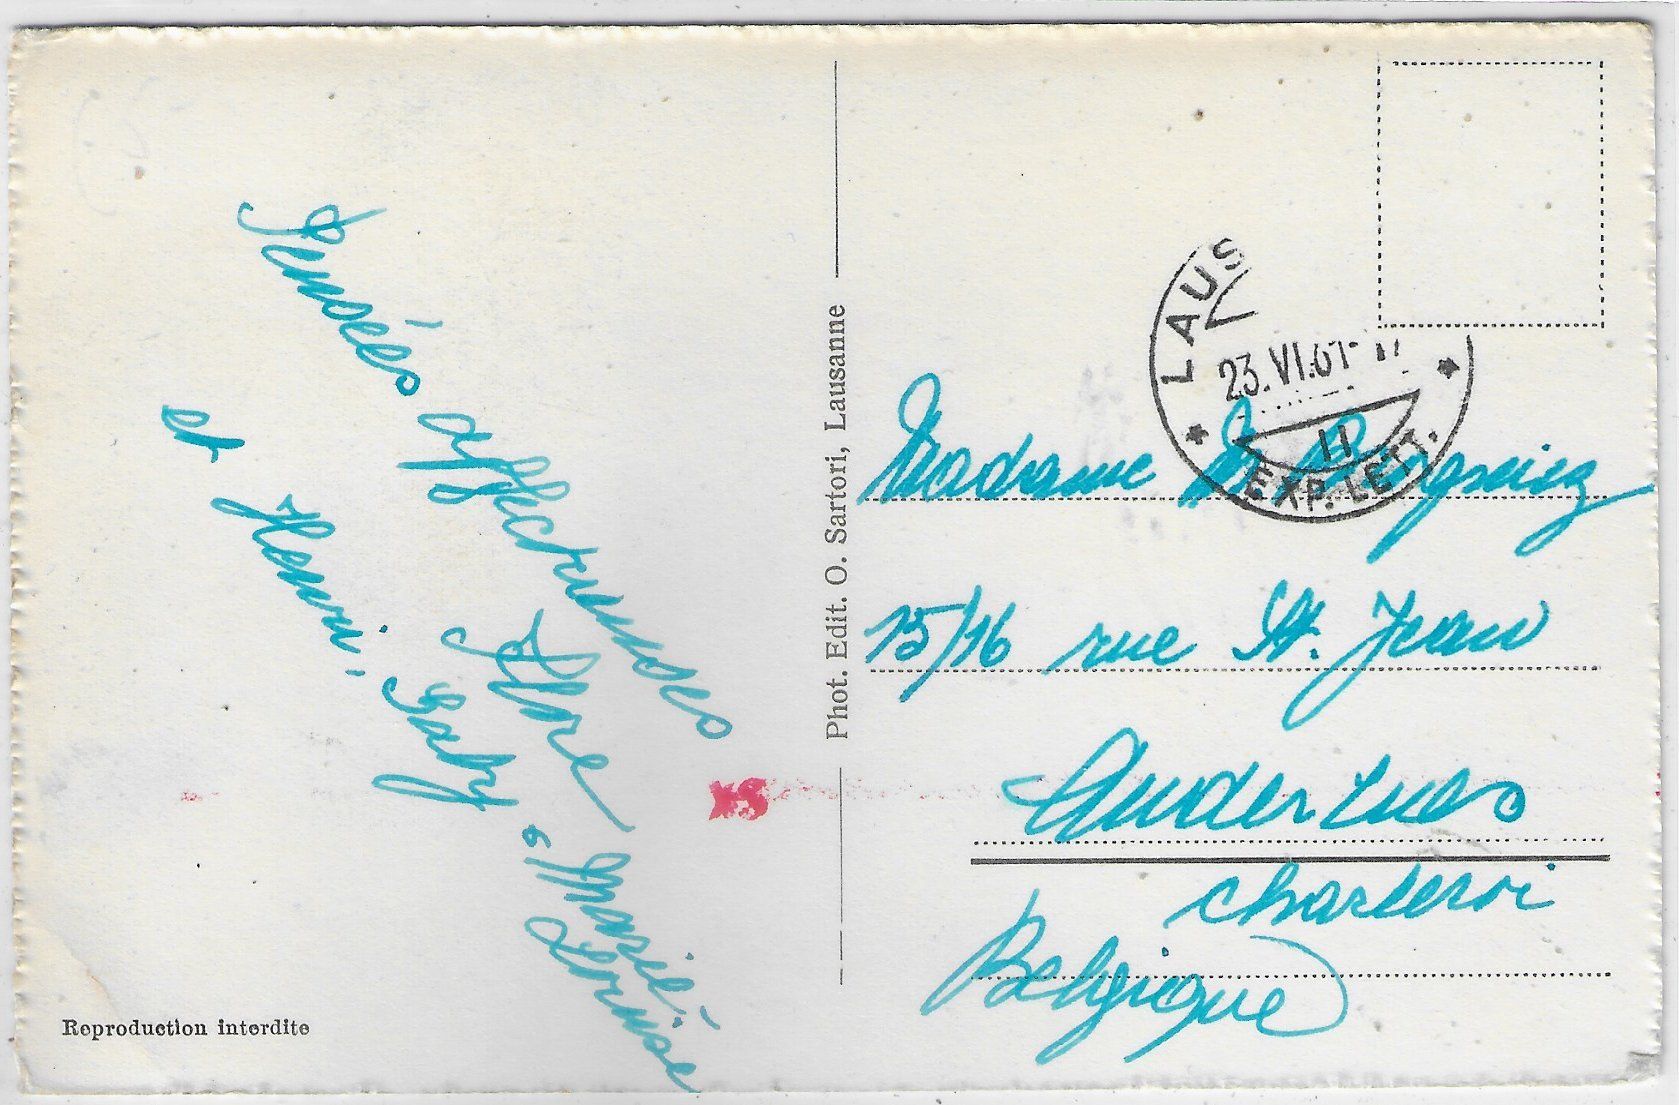 Pensées affectueuses
Flore
et Henri, Gaby, Marie
Louise
Reproduction interdite
Phot. Edit. O. Sartori, Lausanne
LAUS
23. VI. 61-
11
EXP. LETT.
Madame
15/16 rue St. Jean
Charleroi
Belgique